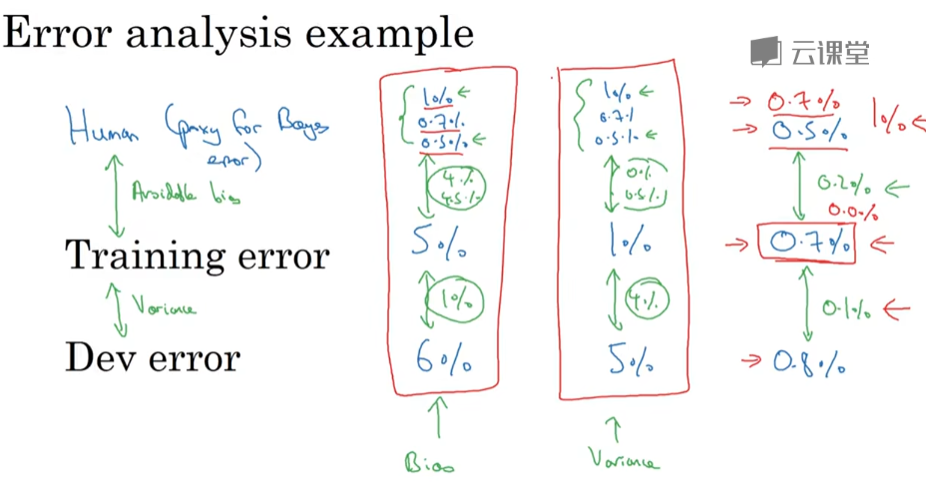 Error analysis example
云课堂
Human (proxy for Bayes error)
Avoidable bias
Training error
Variance
Dev error
1%
0.7%
0.5%
4%
4.5%
5%
1%
6%
Bias
1%
0.7%
0.5%
0%
0.5%
1%
4%
5%
Variance
0.7%
0.5%
1%
0.2%
0.0%
0.7%
0.1%
0.8%